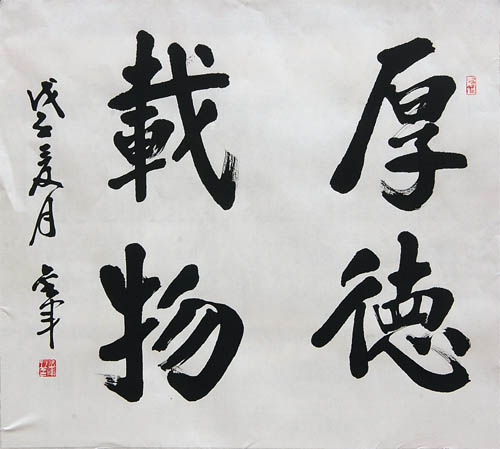 厚德
載物
戊子夏月